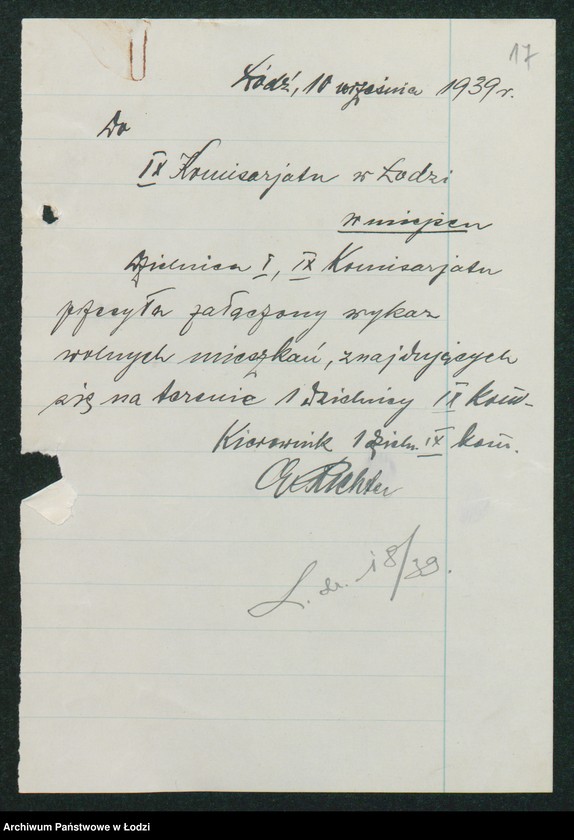 17
Łódź, 10 września 1939 r.
Do
IX Komisarjatu w Łodzi
w miejscu
Dzielnica I, IX Komisarjatu
przesyła załączony wykaz
wolnych mieszkań, znajdujących
się na terenie 1 dzielnicy IX kom.
Kierownik 1 dzieln. IX kom.
Richter
L. dz. 18/39.
Archiwum Państwowe w Łodzi